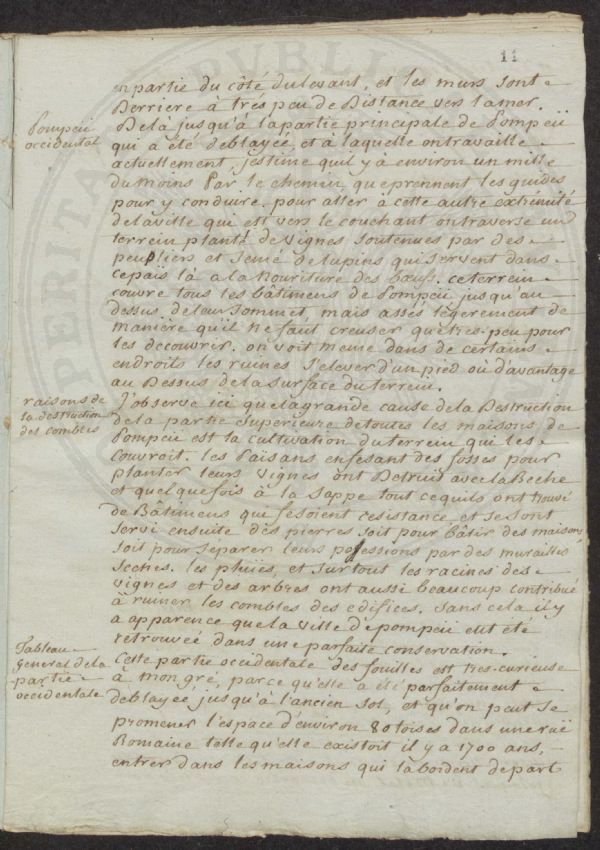 11
en partie du côté du levant, et les murs sont
Derriere à trés peu de Distance vers la mer.
Pompeii
occidental
De là jusqu'à la partie principale de Pompeïi
qui a été deblayeé, et à laquelle on travaille
actuellement, j'estime qu'il y à environ un mille
du moins Par le chemin, que prennent les guides
pour y conduire. pour aller à cette autre extremité
de la ville qui est vers le couchant on traverse un
terrein planté de vignes soutenues par des
peupliers et semé de lupins qui servent dans
ce païs là a la nouriture des bœufs. ce terrein
couvre tous les bâtimens de Pompeii jusqu'au
dessus de leur sommet, mais assés légerement de
maniére qu'il ne faut creuser que tres-peu pour
les decouvrir. on voit meme dans de certains
endroits les ruines s'elever d'un pied où davantage
au Dessus de la surface du terrein.
raisons de
la destruction
des combles
J'observe ici que la grande cause de la Destruction
de la partie superieure de toutes les maisons de
Pompeii est la cultivation du terrein qui les
couvroit. les Païsans en fesant des fosses pour
planter leurs vignes ont Detruit avec la Beche
et quelquefois à la sappe tout ce qu'ils ont trouvé
de Bâtimens qui fesoient resistance, et se sont
servi ensuite des pierres soit pour bâtir des maisons
soit pour separer leurs possessions par des murailles
seches. les pluies, et surtout les racines des
vignes et des arbres ont aussi beaucoup contribué
à ruiner les combles des edifices. sans cela il y
a apparence que la ville de pompeii eut été
retrouveé dans une parfaite conservation.
Tableau
General de la
partie
occidentale
Cette partie occidentale des fouilles est tres-curieuse
à mon gré, parce qu'elle a été parfaitement
deblayeé, jusqu'à l'ancien sol, et qu'on peut se
promener l'espace d'environ 80 toises dans une ruë
Romaine telle qu'elle existoit il y a 1700 ans,
entrer dans les maisons qui la bordent de part